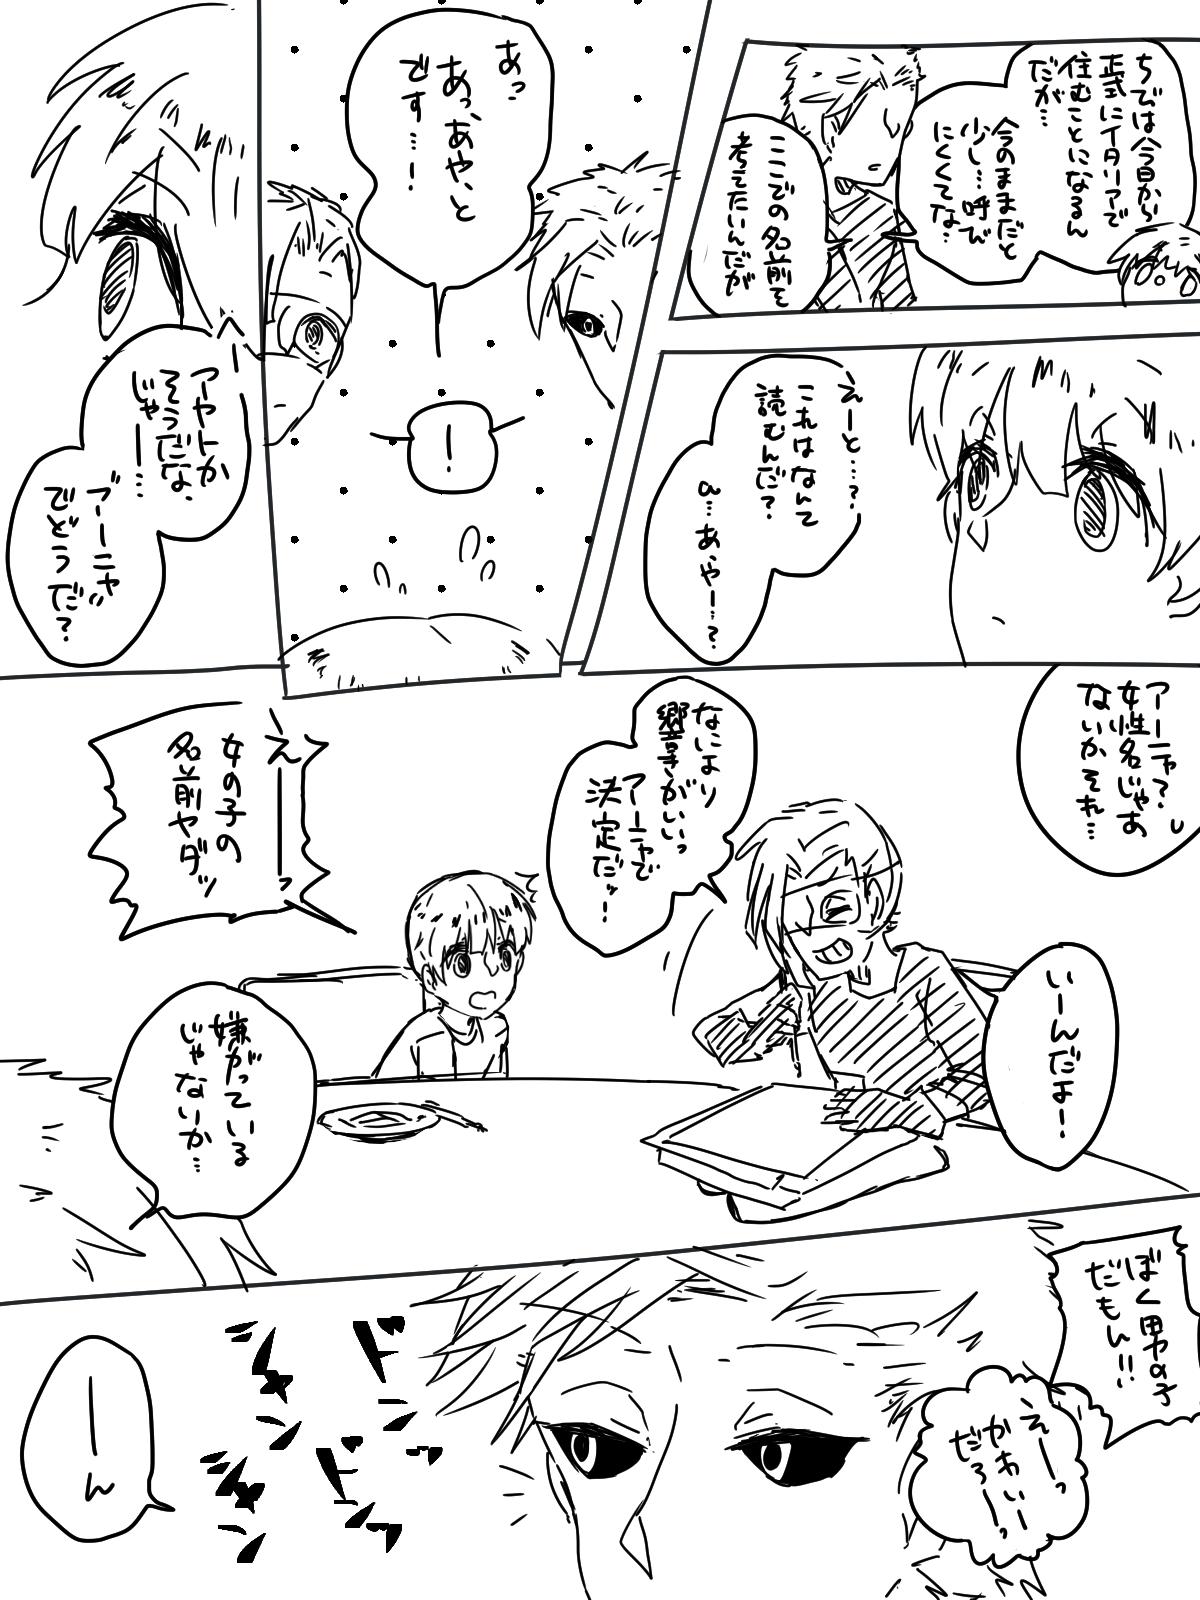 ちびは今日から
正式にイタリアで
住むことになるん
だが…
今のままだと
少し…呼び
にくくてな…
ここでの名前を
考えてたいんだが
えーと……？
これはなんて
読むんだ？
a…あ、やー…？
あっ
あっ、あや、と
です…！
！
アヤトか
そうだな、
じゃー…
"アーニャ"
でどうだ？
アーニャ？
女性名じゃあ
ないかそれ…
なにより
響きがいいっ
アーニャで
決定だッ！
えーーっ
女の子の
名前ヤダッ
いーんだよー！
嫌がっている
じゃないか…
ぼく男の子
だもん!!
えーーっ
かわいー
だろーーっ
ドドドド
ーーん